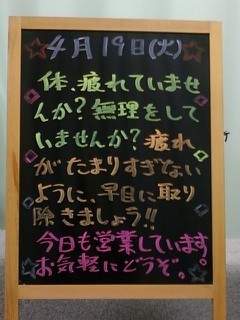 4月19日(火)
体、疲れていませ
んか?無理をして
いませんか?疲れ
がたまりすぎない
ように、早目に取り
除きましょう!!
今日も営業しています。
お気軽にどうぞ。